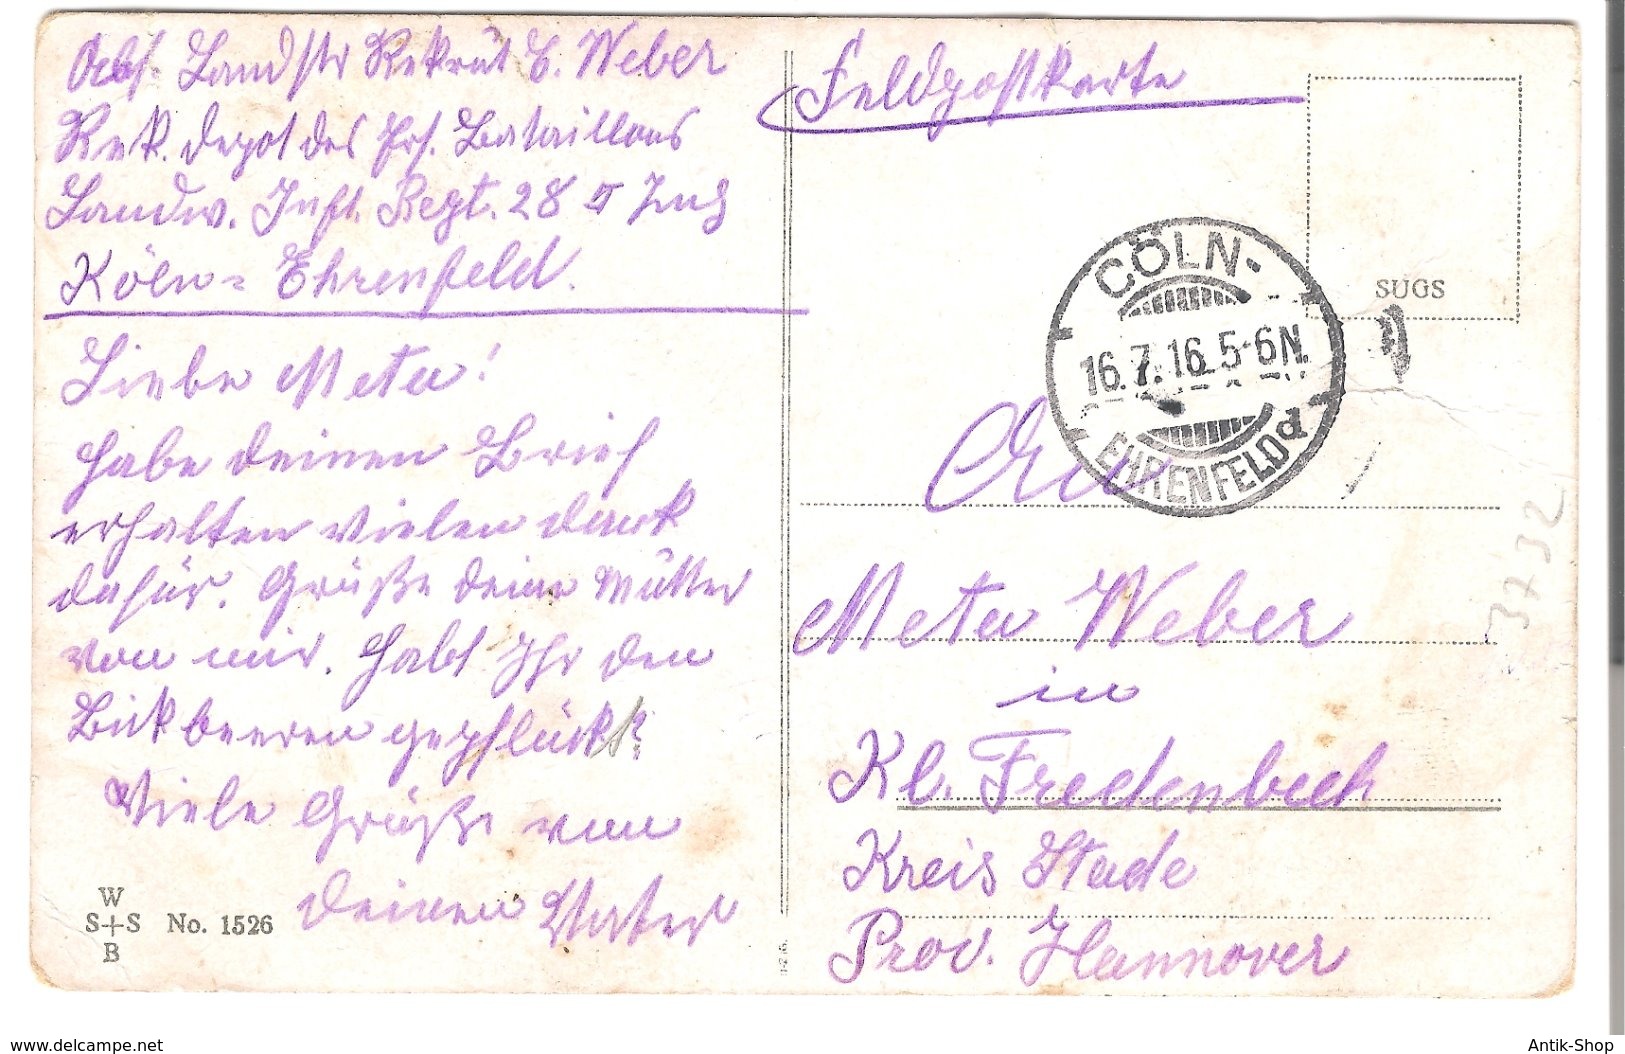 Abs. Landstr Rekrut E. Weber
Rek. depot des Ers. Bataillons
Landw. Inft. Regt. 28 II Zug
Köln = Ehrenfeld.
Liebe Meta!
habe deinen Brief
erhalten vielen dank
dafür. Grüße deine Mutter
von mir. habt Ihr den
Bickbeeren gepflückt?
Viele Grüße von
deinen Vater
W
S+S No. 1526
B
Feldpostkarte
SUGS
CÖLN-
16.7.16. 5-6N.
EHRENFELD d
An
Meta Weber
in
Kl. Fredenbeck
Kreis Stade
Prov. Hannover
3732
www.delcampe.net
Antik-Shop